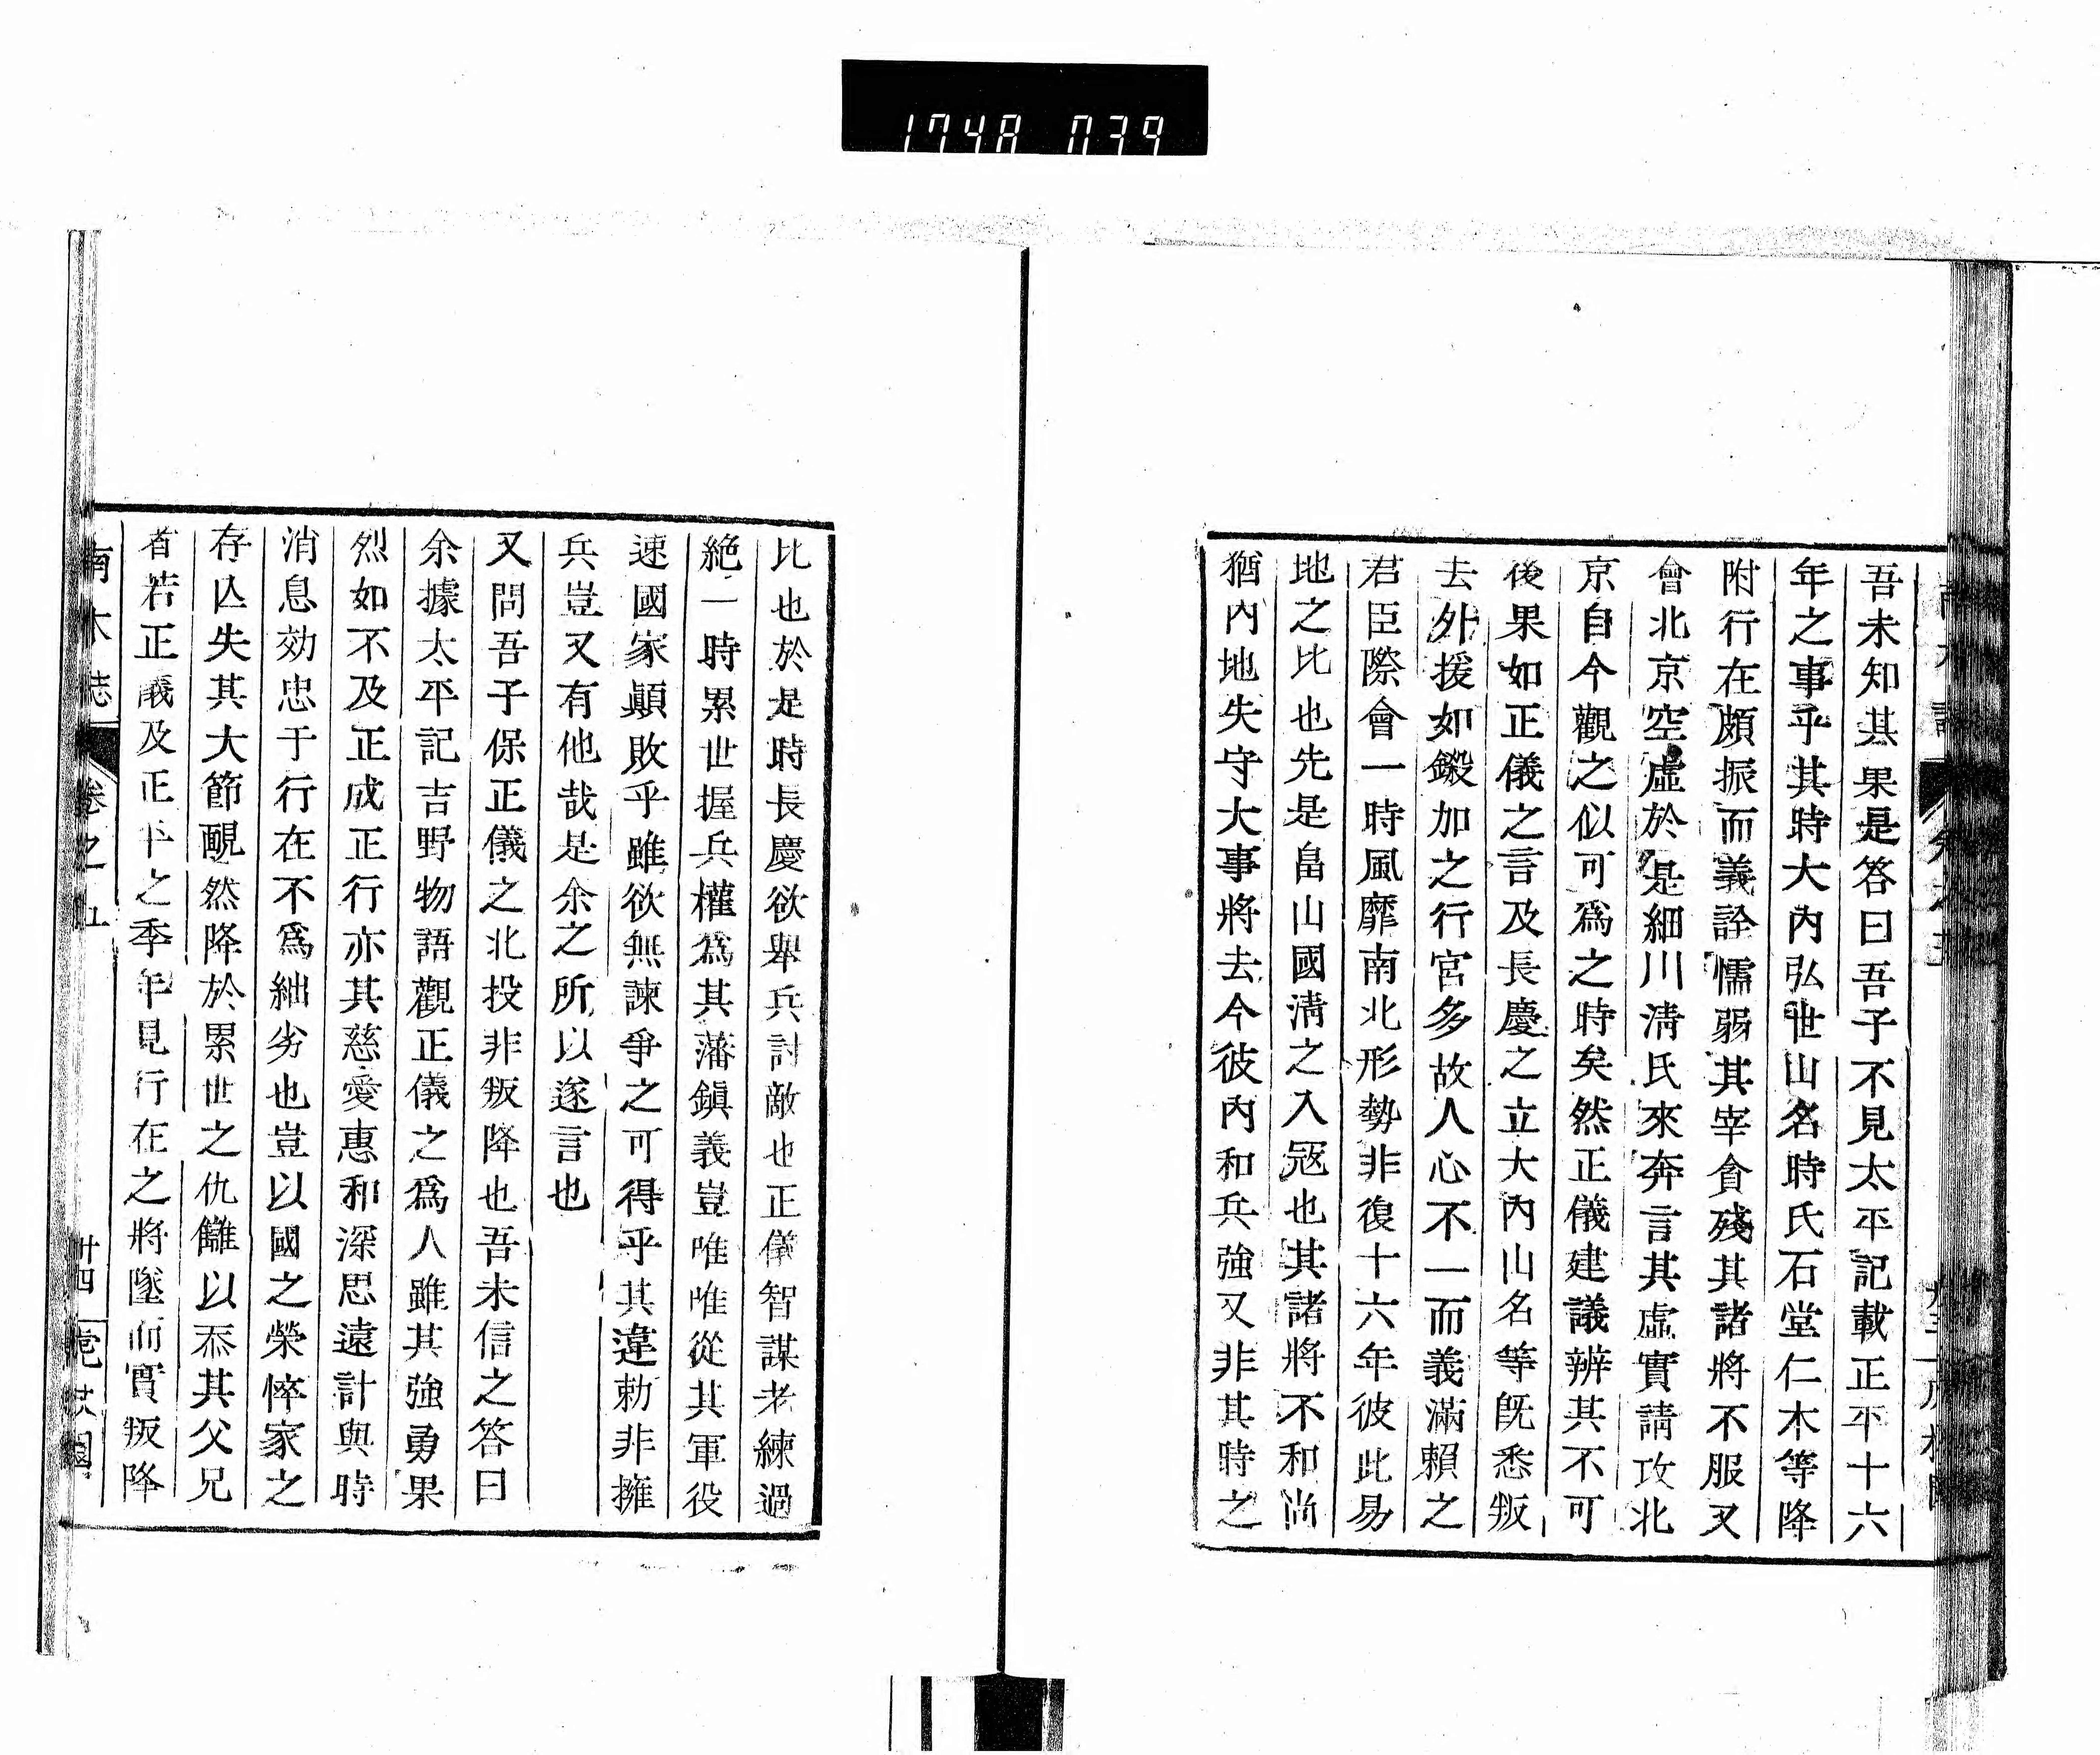 1748 039
吾未知其果是答曰吾子不見太平記載正平十六
年之事乎其時大內弘世山名時氏石堂仁木等降
附行在頗振而義詮懦弱其宰貪殘其諸將不服又
會北京空虛於是細川淸氏來奔言其虛實請攻北
京自今觀之似可爲之時矣然正儀建議辨其不可
後果如正儀之言及長慶之立大內山名等既悉叛
去外援如鎩加之行宮多故人心不一而義滿賴之
君臣際會一時風靡南北形勢非復十六年彼此易
地之比也先是畠山國淸之入寇也其諸將不和尚
猶內地失守大事將去今彼內和兵強又非其時之
比也於是時長慶欲舉兵討敵也正儀智謀老練過
絶一時累世握兵權爲其藩鎭義豈唯唯從其軍役
速國家顚敗乎雖欲無諫爭之可得乎其違勅非擁
兵豈又有他哉是余之所以遂言也
又問吾子保正儀之北投非叛降也吾未信之答曰
余據太平記吉野物語觀正儀之爲人雖其強勇果
烈如不及正成正行亦其慈愛惠和深思遠計與時
消息効忠于行在不爲絀劣也豈以國之榮悴家之
存亾失其大節靦然降於累世之仇讎以忝其父兄
者若正儀及正平之季年見行在之將墜而實叛降
南木誌 卷之五 卄四